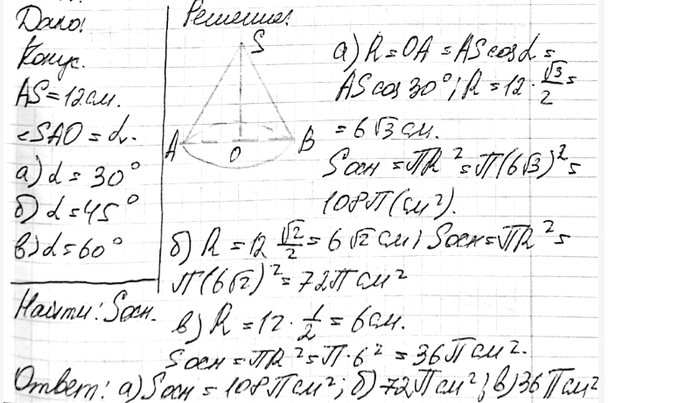 Дано:
Конус.
AS=12см.
∠SAO=α.
а) α=30°
б) α=45°
в) α=60°
Найти: Sосн.
Решение:
S
A
O
B
а) R=OA=AScosα=
AScos30°; R=12·√3/2=
=6√3см.
Sосн=πR²=π(6√3)²=
108π(см²).
б) R=12 √2/2=6√2см; Sосн=πR²=
π(6√2)²=72πсм²
в) R=12·1/2=6см.
Sосн=πR²=π·6²=36πсм².
Ответ: а) Sосн=108πсм²; б) 72πсм²; в) 36πсм²